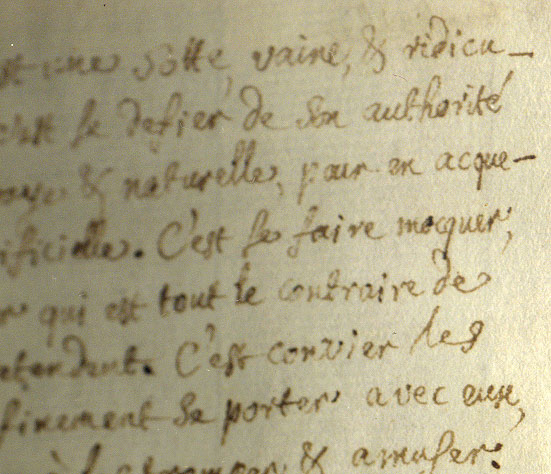 est une sotte, vaine, & ridicu-
c'est se defier de son authorité
& naturelle, pour en acque-
ificielle. C'est se faire mocquer,
r qui est tout le contraire de
etendent. C'est convier les
finement se porter avec eux,
à les tromper & amuser.